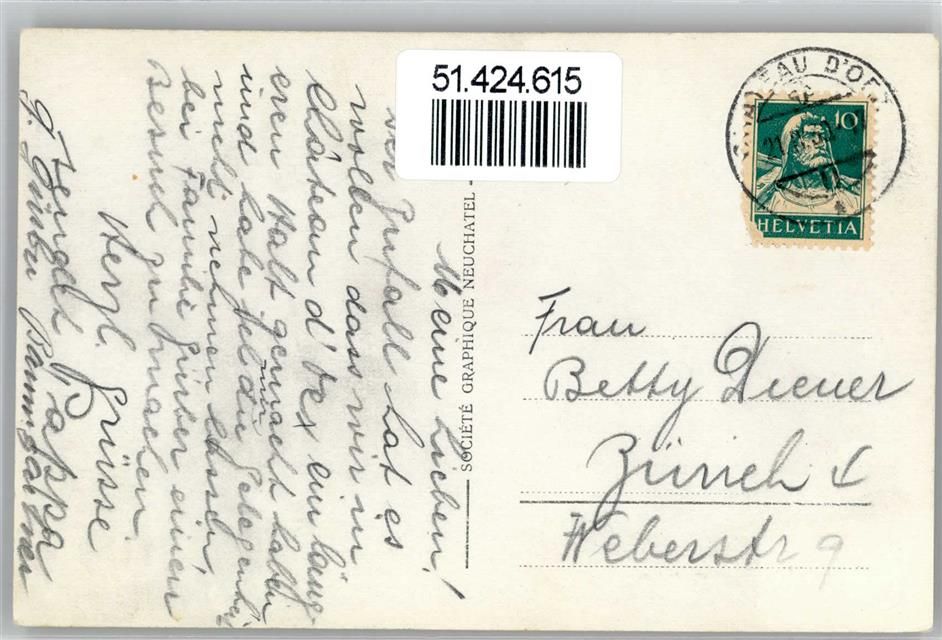 51.424.615
CHATEAU D'OEX
10
HELVETIA
SOCIÉTÉ GRAPHIQUE NEUCHATEL
Meine Lieben!
Der Zufall hat es
wollen dass wir in
Château d'Oex ein länge-
eren Halt gemacht haben
und habe mir die Gelegenheit
nicht nehmen lassen,
bei Familie einen
Besuch zu machen.
Herzl. Grüsse
Papa
Frau
Betty Diener
Zürich
Weberstr 9